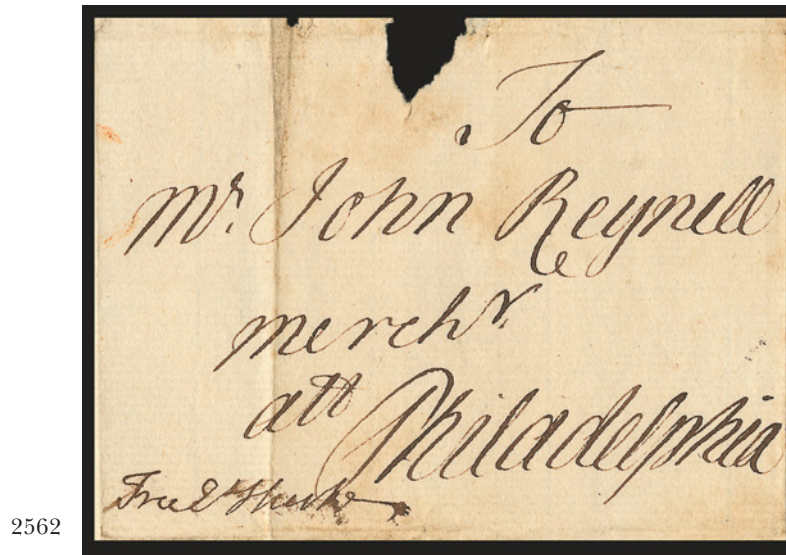 To
Mr. John Reynell
merchr.
att
Philadelphia
Free
2562